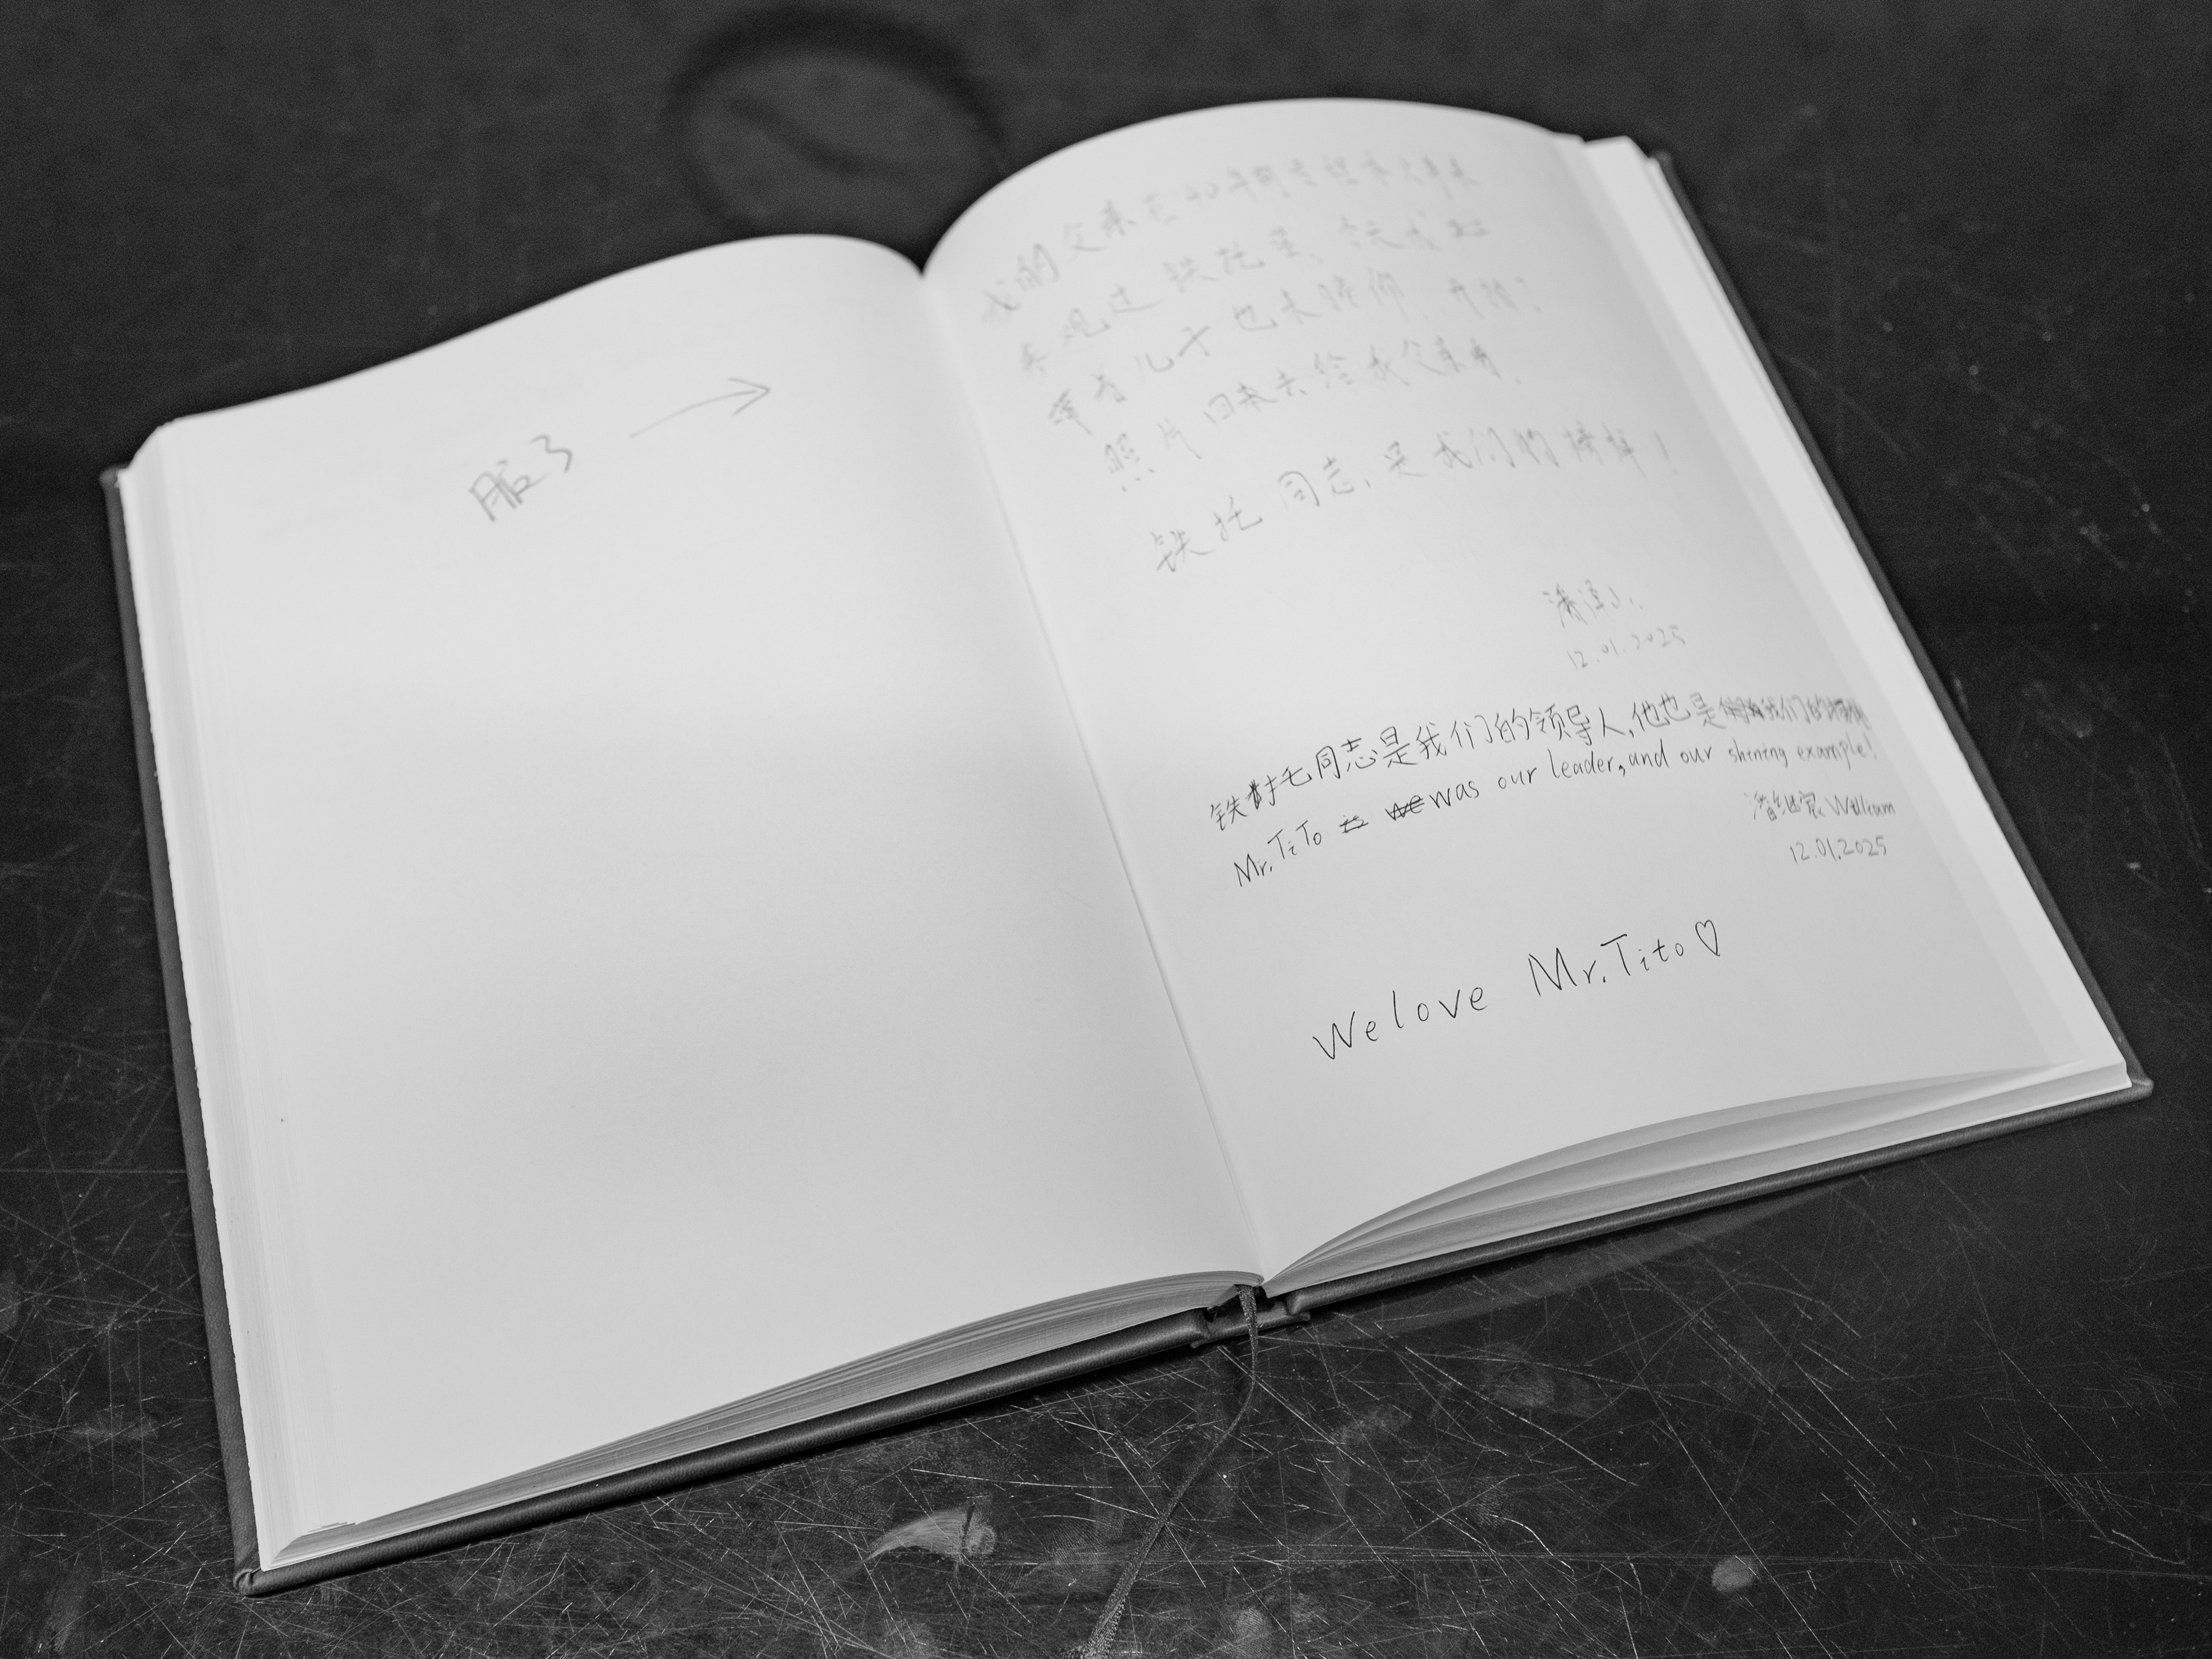 服了 →
我的父亲在40年前
参观过铁托墓,今天我
带着儿子也来瞻仰
照片回来去给我父亲看.
铁托同志,是我们的榜样!
12.01.2025
铁托同志是我们的领导人,他也是我们的榜样
Mr. TiTo is we was our leader, and our shining example!
潘继宸 William
12.01.2025
We love Mr. Tito ♡